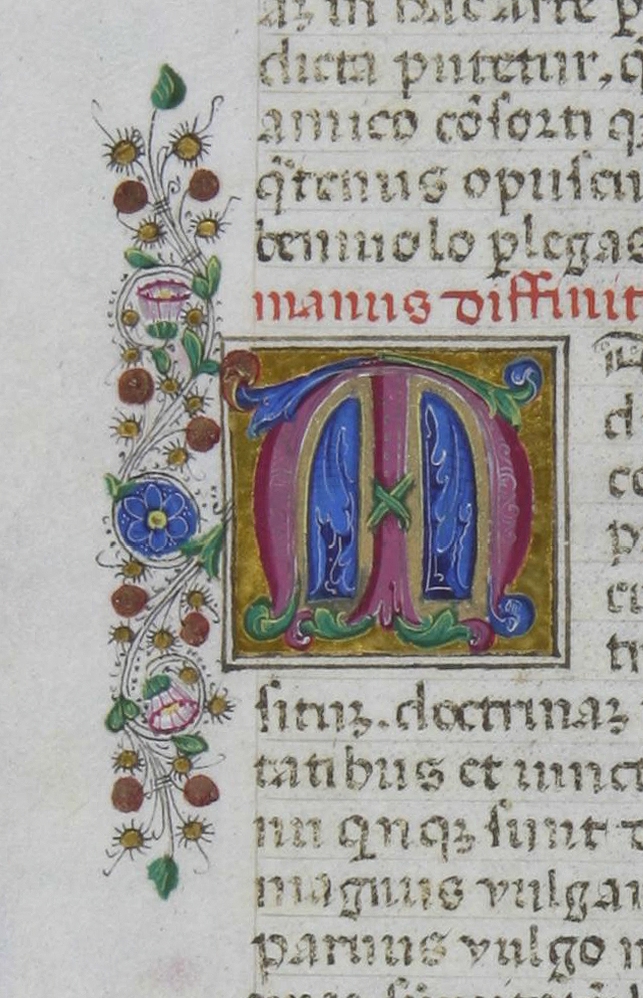 az in hac arte p
dicta putetur, q
amico cōsorti q
q̄tenus opuscu
beniuolo plegac
manus diffinit
M
d
co
p
cu
tu
situz. doctrinaz
tatibus et iunct
ni qnqz sunt d
magnus vulgar
paruus vulgo n